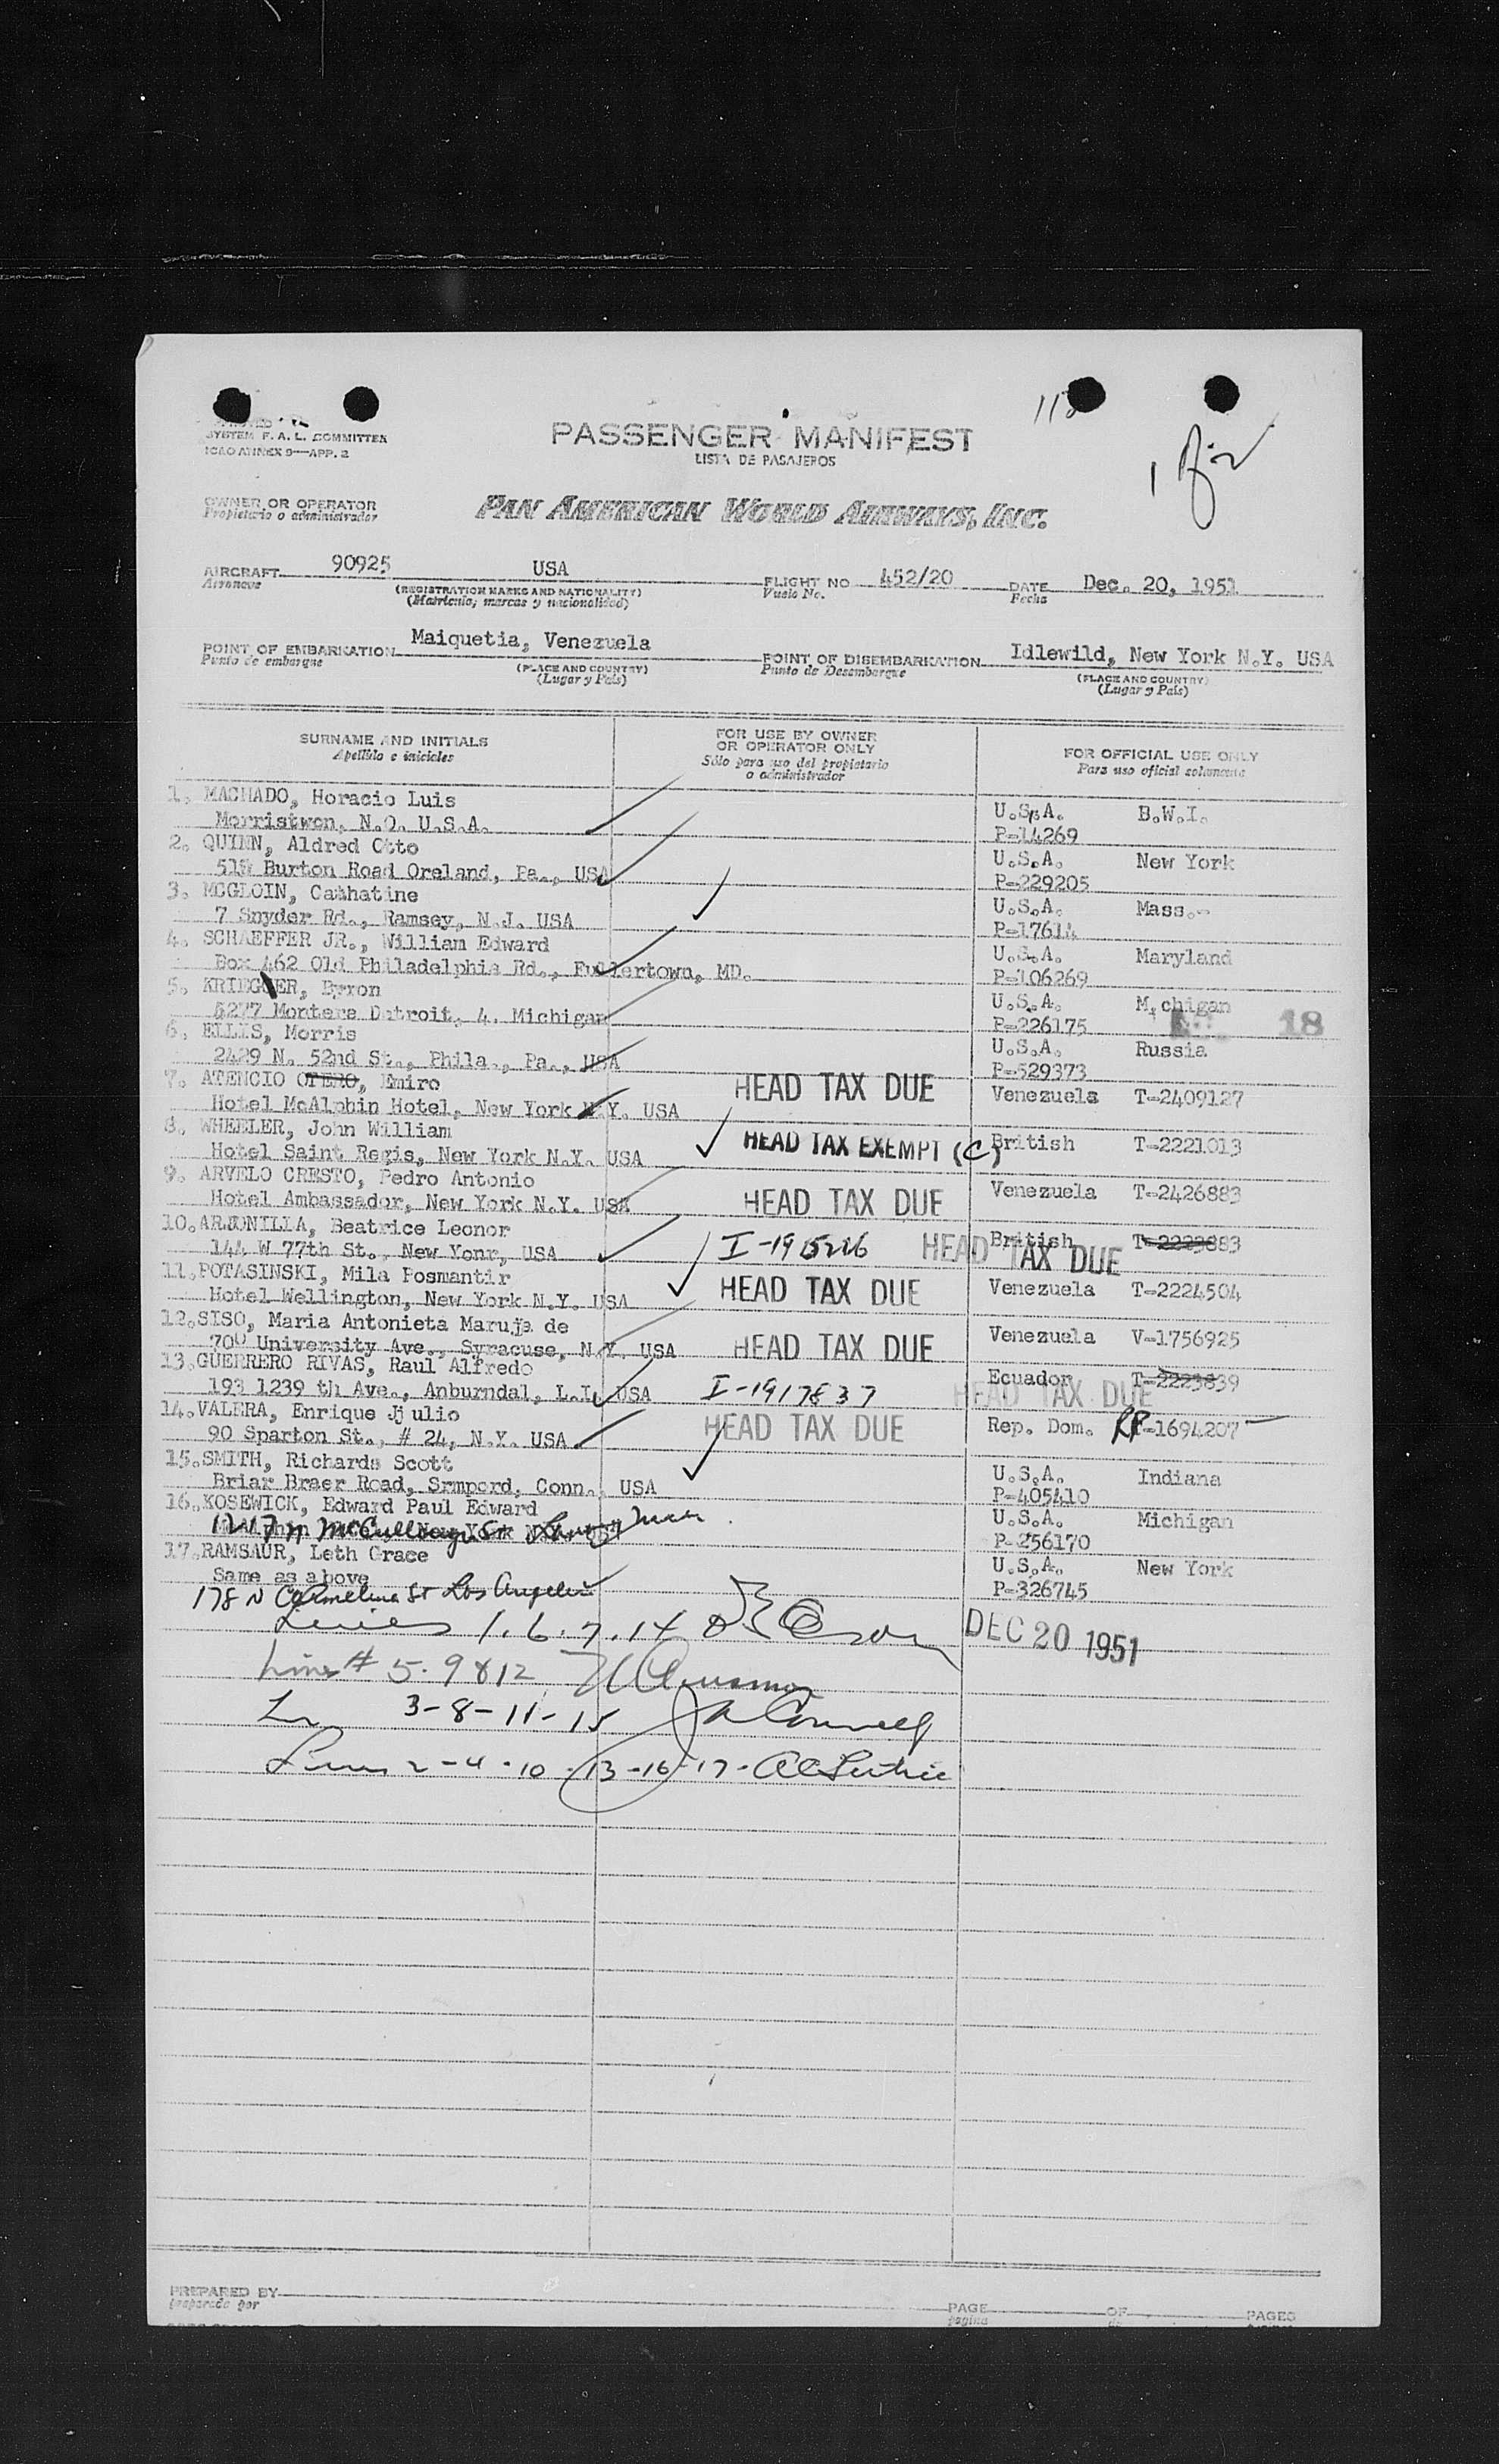 SYSTEM F. A. L. COMMITTEE
ICAO ANNEX 9—APP. 2
PASSENGER MANIFEST
LISTA DE PASAJEROS
OWNER OR OPERATOR
Propietario o administrador
PAN AMERICAN WORLD AIRWAYS, INC.
AIRCRAFT 90925 USA FLIGHT NO 452/20 DATE Dec. 20, 1951
Aeronave (REGISTRATION MARKS AND NATIONALITY) Vuelo No. Fecha
(Matricula, marcas y nacionalidad)
POINT OF EMBARKATION Maiquetia, Venezuela POINT OF DISEMBARKATION Idlewild, New York N.Y. USA
Punto de embarque (PLACE AND COUNTRY) Punto de Desembarque (PLACE AND COUNTRY)
(Lugar y País) (Lugar y País)
SURNAME AND INITIALS FOR USE BY OWNER OR OPERATOR ONLY FOR OFFICIAL USE ONLY
Apellido e iniciales Sólo para uso del propietario o administrador Para uso oficial solamente
1. MACHADO, Horacio Luis U.S.A. B.W.I.
Morristwon, N.O. U.S.A. P-14269
2. QUINN, Aldred Otto U.S.A. New York
Burton Road Oreland, Pa., USA P-229205
3. MCGLOIN, Cathatine U.S.A. Mass.-
7 Snyder Rd., Ramsey, N.J. USA P-17614
4. SCHAEFFER JR., William Edward U.S.A. Maryland
Box 462 Old Philadelphia Rd., Fullertown, MD. P-106269
5. KRIEGER, Byron U.S.A. Michigan
Montera Detroit, 4. Michigan P-226175 18
6. ELLIS, Morris U.S.A. Russia
2429 N. 52nd St., Phila., Pa., USA P-529373
7. ATENCIO OTERO, Emiro HEAD TAX DUE Venezuela T-2409127
Hotel McAlphin Hotel, New York N.Y. USA
8. WHEELER, John William HEAD TAX EXEMPT (C) British T-2221013
Hotel Saint Regis, New York N.Y. USA
9. ARVELO CRESTO, Pedro Antonio HEAD TAX DUE Venezuela T-2426883
Hotel Ambassador, New York N.Y. USA
10. ARJONILLA, Beatrice Leonor I-1915226 HEAD TAX DUE British T-2223883
144 W 77th St., New Yonr, USA
11. POTASINSKI, Mila Posmantir HEAD TAX DUE Venezuela T-2224504
Hotel Wellington, New York N.Y. USA
12. SISO, Maria Antonieta Maruja de HEAD TAX DUE Venezuela V-1756925
700 University Ave., Syracuse, N.Y. USA
13. GUERRERO RIVAS, Raul Alfredo I-1917837 HEAD TAX DUE Ecuador T-2223839
193 1239 th Ave., Anburndal, L.I. USA
14. VALERA, Enrique Jjulio HEAD TAX DUE Rep. Dom. RP-1694207
90 Sparton St., # 24, N.Y. USA
15. SMITH, Richards Scott U.S.A. Indiana
Briar Braer Road, Srmpord, Conn., USA P-405410
16. KOSEWICK, Edward Paul Edward U.S.A. Michigan
1217 N McCullough St Lansing Mich. P-256170
17. RAMSAUR, Leth Grace U.S.A. New York
Same as above P-326745
178 N Carmelina St Los Angeles
Lines 1.6.7.14 DEC 20 1951
Lines # 5.9&12
3-8-11-15
Lines 2-4-10-13-16-17-
PREPARED BY
preparado por
PAGE OF PAGES
página de